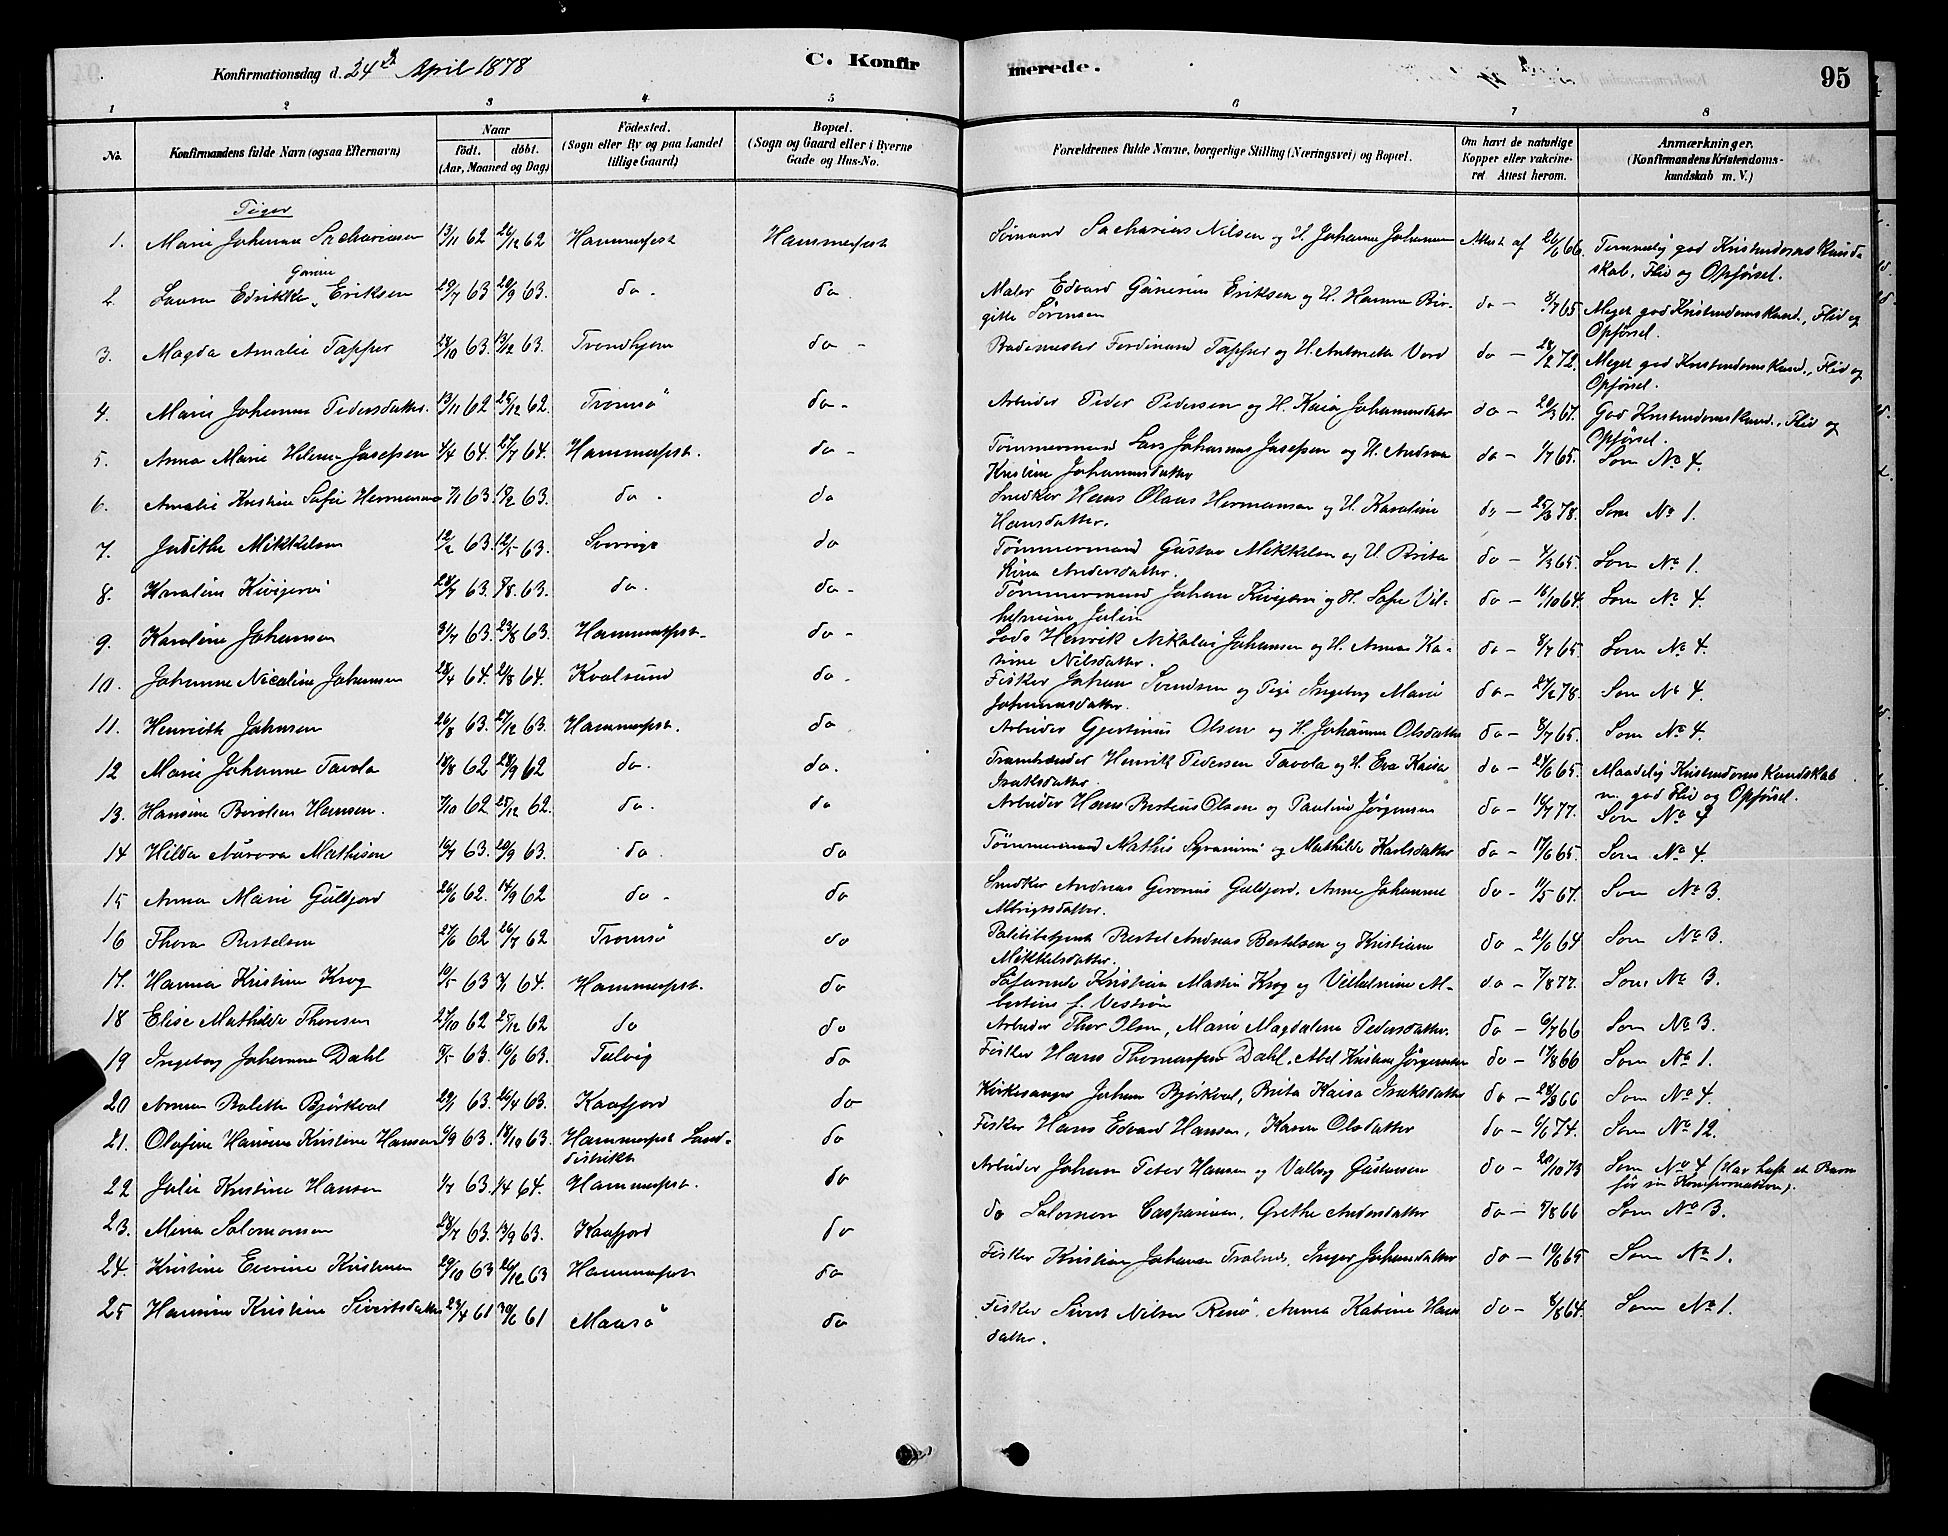 Konfirmationsdag d. 24de April 1878
C. Konfirmerede.
95
1 2 3 4 5 6 7 8
No.
Konfirmandens fulde Navn (ogsaa Efternavn)
Naar
født. døbt.
(Aar, Maaned og Dag)
Fødested.
(Sogn eller By og paa Landet
tillige Gaard)
Bopæl.
(Sogn og Gaard eller i Byerne
Gade og Hus-No.
Forældrenes fulde Navne, borgerlige Stilling (Næringsvei) og Bopæl.
Om havt de naturlige
Kopper eller vakcine-
ret Attest herom.
Anmærkninger.
(Konfirmandens Kristendoms-
kundskab m. V.)
Piger
1. Marie Johanne Sachariasen 13/11 62 26/12 62 Hammerfest Hammerfest Sömand Sacharias Nilsen og H. Johanne Johannesen Attest af 66. Temmelig god Kristendomskunds
skab, Flid og Opførsel.
2. Laura Edrikke Garine Eriksen 29/7 63 20/9 63. do. do. Maler Edvard Ganerius Eriksen og H. Hanna Bir-
gitte Sörensen do - 8/7 65 Meget god Kristendomskund., Flid og
Opførsel.
3. Magda Amalie Tapper 28/10 63. 13/12 63. Trondhjem do - Bademester Ferdinand Tapper og H. Antonette Vord do - 28/2 72. Meget god Kristendomskund., Flid og
Opførsel.
4. Marie Johanne Pedersdatter. 13/11 62 25/12 62. Tromsö do - Arbeider Peder Pedersen og H. Kaia Johannesdatter do - 67. God Kristendomskund., Flid og
Opførsel.
5. Anna Marie Helene Josefsen 4/4 64. 64. Hammerfest. do - Tømmermand Lars Johannes Josefsen og H. Andrea
Kristine Johannesdatter do - 1/7 65. Som No 4.
6. Amalie Kristine Sofie Hermansen 63. 63. do. do Snedker Hans Olaus Hermansen og H. Karoline
Hansdatter. do - 25/3 78. Som No 1.
7. Judithe Mikkelsen 12/2 63. 12/5 63. Sverrige do Tømmermand Gustav Mikkelsen og H. Brita
Lisa Andersdatter. do - 4/3 65. Som No 1.
8. Karoline Kivijervi 63. 63. do. do - Tømmermand Johan Kivijervi og H. Sofie Vil-
helmine Julin do - 16/10 64. Som No 4.
9. Karoline Johansen 3/7 63. 23/8 63. Hammerfest. do - Lods Henrik Nikolai Johansen og H. Anna Ka-
trine Nilsdatter. do - 8/7 65. Som No 4.
10. Johanne Nicoline Johansen 28/4 64. 21/8 64. Kvalsund do - Fisker Johan Svendsen og Pige Ingeborg Marie
Johannesdatter. do - 78. Som No 4.
11. Henriette Johnsen 26/8 63. 27/12 63. Hammerfest. do Arbeider Gjertinius Olsen og H. Johanne Olsdatter do - 8/7 65. Som No 4.
12 Marie Johanne Tavola 18/8 62 28/9 62 do. do. Tranbrænder Henrik Pedersen Tavola og H. Eva Kaisa
Isaksdatter. do - 65. Maadelig Kristendomskundskab
m. god Flid og Opførsel.
13. Hansine Hansen. 7/10 62 25/12 62. do. do Arbeider Hans Olsen og Pauline Jörgensen do - 77. Som No 4
14 Hilda Aurora Mathisen 16/7 63. 20/9 63. do. do Tømmermand Mathis og Mathilde Karlsdatter do - 17/6 65. Som No 4.
15 Anna Marie Guldfjord 20/6 62. 14/9 62 do - do Snedker Andreas Guldfjord, Anne Johanne
Albrigtsdatter. do - 11/5 67. Som No 3.
16 Thora Bertelsen 27/6 62 26/7 62 Tromsö do Politibetjent Bertel Andreas Bertelsen og Kristiane
Mikkelsdatter. do - 64 Som No 3.
17. Hanna Kristine Krog 10/5 63 64. Hammerfest. do Søfarende Kristian Martin Krog og Vilhelmine Al-
bertine f. do - 7/8 77. Som No 3.
18 Elise Mathilde Thoresen 27/10 62 25/12 62 do do Arbeider Thor Olsen, Marie Magdalena Pedersdatter. do - 6/7 66 Som No 3.
19 Ingeborg Johanne Dahl 63. 63. Talvig do Fisker Hans Thomassen Dahl, Abel Kristine Jörgensen do - 17/8 66 Som No 1.
20 Anna Bolette Björkval 63. 26/4 63. Kaafjord do Kirkesanger Johan Björkval, Brita Kaisa Isaksdatter do - 66 Som No 4.
21. Olufine Hansine Kristine Hansen 63. 18/10 63. Hammerfest Land-
distrikt do Fisker Hans Edvard Hansen, Karen Olsdatter do - 6/6 74. Som No 12.
22 Julie Kristine Hansen 1/7 63. 64. Hammerfest. do Arbeider Johan Peter Hansen og Valborg Gustavsen do - 20/10 73 Som No 4 (Har havt et Barn
før sin Konfirmation).
23. Mina Salomonsen 28/7 63. 13/9 63. Kaafjord do do Salomon Caspersen, Grethe Andersdatter do - 7/8 66 Som No 3.
24. Kristine Kristiansen 29/10 63 26/12 63 Hammerfest do Fisker Kristian Johansen, Inger Johansdatter do - 19/6 65 Som No 1.
25 Hansine Kristine Sivertsdatter 23/4 61 30/6 61 Maasö do Fisker Sivert Nilsen Renö, Anna Katrine Hans-
datter. do - 8/8 64. Som No 1.